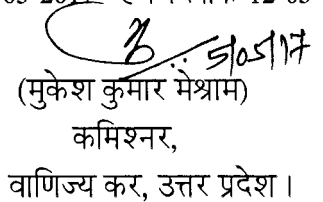 5/05/17
(मुकेश कुमार मेश्राम)
कमिश्नर,
वाणिज्य कर, उत्तर प्रदेश।